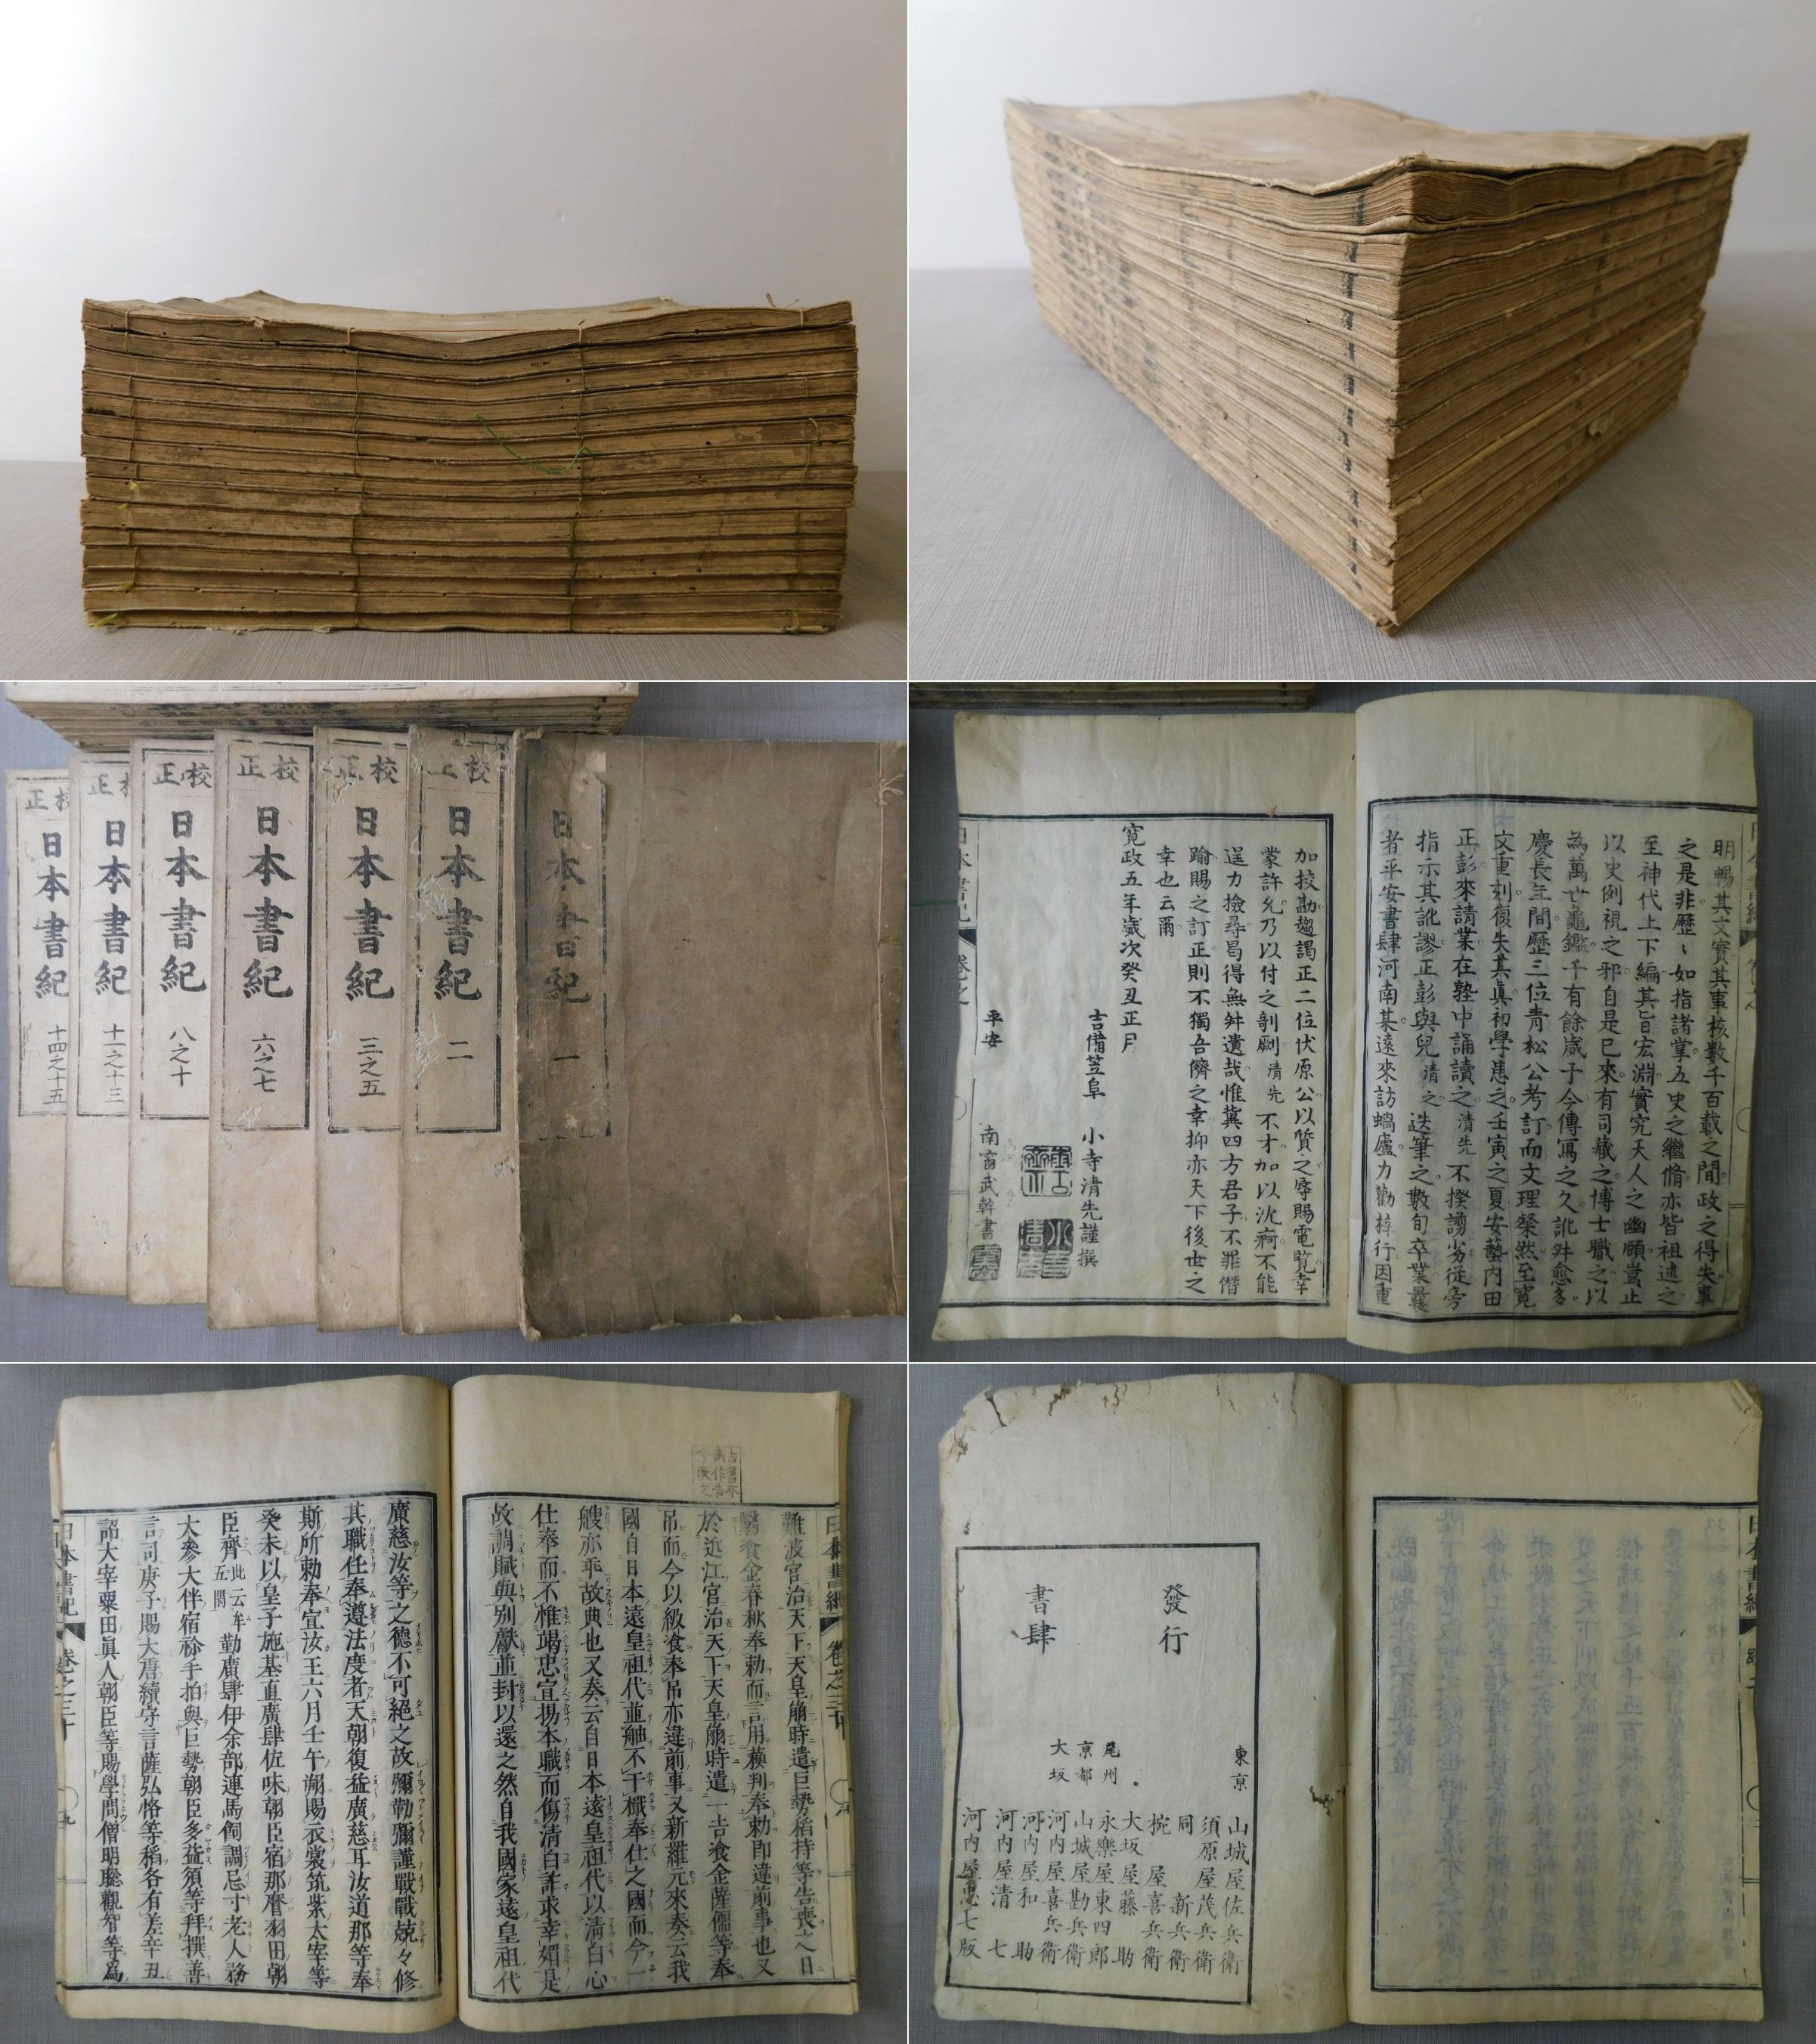 校正
日本書紀
一
校正
日本書紀
二
校正
日本書紀
三之五
校正
日本書紀
六之七
校正
日本書紀
八之十
校正
日本書紀
十一之十三
校正
日本書紀
十四之十五
明暢其文實其事核數千百載之間政之得失事
之是非歷〻如指諸掌五史之繼脩亦皆祖述之
至神代上下編其旨宏淵實究天人之幽賾豈止
以史例視之邪自是已來有司藏之博士職之以
為萬世龜鑑千有餘歲于今傳寫之久訛舛愈多
慶長年間歷三位青松公考訂而文理粲然至寬
文重刻復失其眞初學患之壬寅之夏安藝內田
正彭來請業在塾中誦讀之清先不揆謭劣從旁
指示其訛謬正彭與兒清之迭筆之數旬卒業曩
者平安書肆河南某遠來訪蝸廬力勸梓行因重
加挍勘趨謁正二位伏原公以質之辱賜電覧幸
蒙許允乃以付之剞劂清先不才加以沈痾不能
逞力撿尋曷得無舛遺哉惟冀四方君子不罪僭
踰賜之訂正則不獨吾儕之幸抑亦天下後世之
幸也云爾
寬政五年歲次癸丑正月
吉備笠阜 小寺清先謹撰
平安 南窗武幹書
難波宮治天下天皇崩時遣巨勢稻持等告喪之日
翳飡金春秋奉勅而言用蘓判奉勅即違前事也又
於近江宮治天下天皇崩時遣一吉飡金薩儒等奉
吊而今以級飡奉吊亦違前事又新羅元來奏云我
國自日本遠皇祖代並舳不干檝奉仕之國而今一
艘亦乖故典也又奏云自日本遠皇祖代以清白心
仕奉而不惟竭忠宣揚本職而傷清白詐求幸媚是
故調賦與別獻並封以還之然自我國家遠皇祖代
廣慈汝等之德不可絕之故彌勤彌謹戰戰兢々修
其職任奉遵法度者天朝復益廣慈耳汝道那等奉
斯所勅奉宣汝王六月壬午朔賜衣裳筑紫太宰等
癸未以皇子施基直廣肆佐味朝臣宿那麿羽田朝
臣齊此云牟五閇勤廣肆伊余部連馬飼調忌寸老人務
大參大伴宿祢手拍與巨勢朝臣多益須等拜撰善
言司庚子賜大唐續守言薩弘恪等稻各有差辛丑
詔大宰粟田眞人朝臣等賜學問僧明聡觀智等爲
日本書紀 卷之三十 九
發行
書肆
東京 山城屋佐兵衛
須原屋茂兵衛
同 新兵衛
椀屋喜兵衛
大坂屋藤助
尾州 永樂屋東四郎
京都 山城屋勘兵衛
大坂 河内屋喜兵衛
河内屋和助
河内屋清七
河内屋惠七版